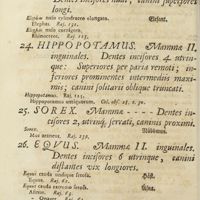 Dentes incisores nulli, canini superiores
longi.
Elephas naso cylindraceo elongato. Elefant.
Elephas. Raj. 131.
naso carnigero.
Rhinoceros. Raj. 123.
24. HIPPOPOTAMUS. Mammæ II.
inguinales. Dentes incisores 4. utrin-
que: Superiores per paria remoti; in-
feriores prominentes intermediis maxi-
mis; canini solitarii oblique truncati.
Hippopotamus. Raj. 123.
Hippopotamus antiquorum. Col. obs. 28. t. 30.
25. SOREX. Mammæ - - - - Dentes in-
cisores 2, utrinq; serrati, canini proximi.
Sorex.
Mus araneus. Raj. 239. Näbbmus.
26. EQVUS. Mammæ II. inguinales.
Dentes incisores 6 utrinque, canini
distantes vix longiores.
Equus cauda undique setosa. Häst.
Equus. Raj. 62.
Equus cauda extremo setosa. Åsna.
Asinus. Raj. 63.